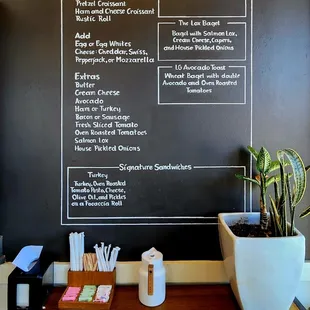 Pretzel Croissant
Ham and Cheese Croissant
Rustic Roll
Add
Egg or Egg Whites
Cheese: Cheddar, Swiss,
Pepperjack, or Mozzarella
Extras
Butter
Cream Cheese
Avocado
Ham or Turkey
Bacon or Sausage
Fresh Sliced Tomato
Oven Roasted Tomatoes
Salmon Lox
House Pickled Onions
The Lox Bagel
Bagel with Salmon Lox,
Cream Cheese, Capers,
and House Pickled Onions
LG Avocado Toast
Wheat Bagel with double
Avocado and Oven Roasted
Tomatoes
Signature Sandwiches
Turkey
Turkey, Oven Roasted
Tomato Pesto, Cheese,
Olive Oil, and Pickles
on a Focaccia Roll